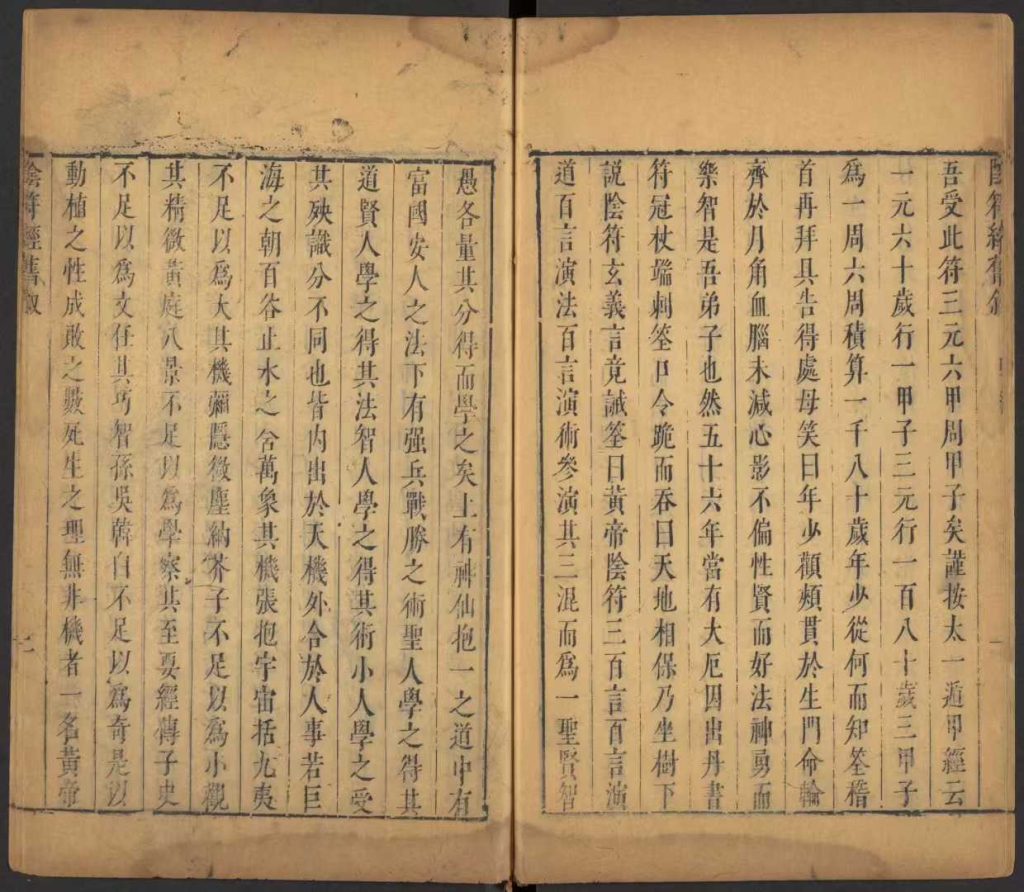 陰符經舊敘
吾受此符三元六甲周甲子矣謹按太一遁甲經云
一元六十歲行一甲子三元行一百八十歲三甲子
為一周六周積算一千八十歲年少從何而知筌稽
首再拜具告得處母笑曰年少顴頰貫於生門命輪
齊於月角血腦未減心影不偏性賢而好法神勇而
樂智是吾弟子也然五十六年當有大厄因出丹書
符冠杖端刺筌口令跪而吞曰天地相保乃坐樹下
說陰符玄義言竟誡筌曰黃帝陰符三百言百言演
道百言演法百言演術參演其三混而為一聖賢智
愚各量其分得而學之矣上有神仙抱一之道中有
富國安人之法下有强兵戰勝之術聖人學之得其
道賢人學之得其法智人學之得其術小人學之受
其殃識分不同也皆內出於天機外合於人事若巨
海之朝百谷止水之含萬象其機張抱宇宙括九夷
不足以為大其機彌隱微塵納芥子不足以為小觀
其精微黃庭八景不足以為學察其至要經傳子史
不足以為文任其巧智孫吳韓白不足以為奇是以
動植之性成敗之數死生之理無非機者一名黃帝
陰符經舊敘